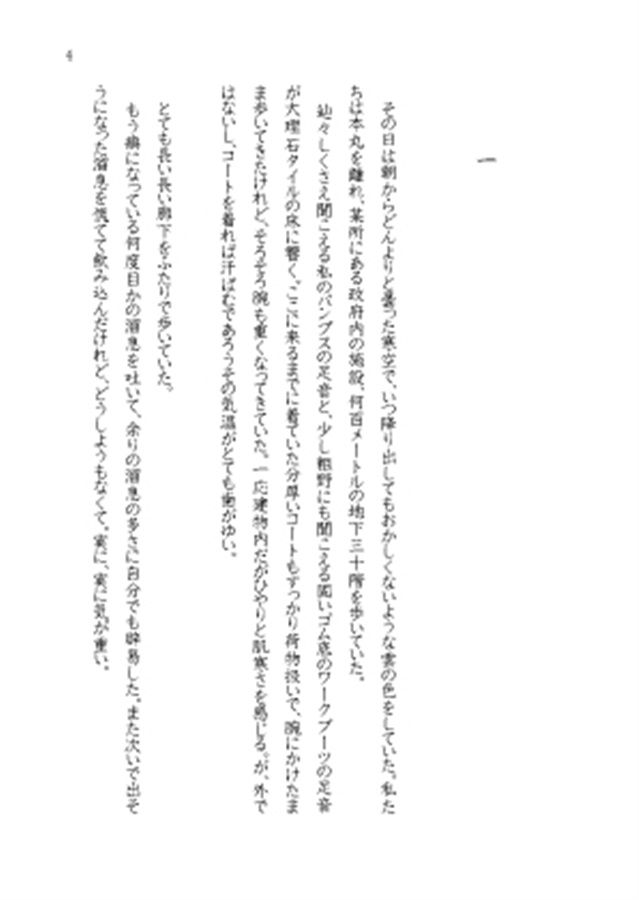 4
一
その日は朝からどんよりと曇った寒空で、いつ降り出してもおかしくないような雲の色をしていた。私た
ちは本丸を離れ、某所にある政府内の施設、何百メートルの地下三十階を歩いていた。
々しくさえ聞こえる私のパンプスの足音と、少し粗野にも聞こえる固いゴム底のワークブーツの足音
が大理石タイルの床に響く。ここに来るまでに着ていた分厚いコートもすっかり荷物扱いで、腕にかけたま
ま歩いてきたけれど、そろそろ腕も重くなってきていた。一応建物内だがひやりと肌寒さを感じる。が、外で
はないし、コートを着れば汗ばむであろうその気温がとても歯がゆい。
とても長い長い廊下をふたりで歩いていた。
もう癖になっている何度目かの溜息を吐いて、余りの溜息の多さに自分でも辟易した。また次いで出そ
うになった溜息を慌てて飲み込んだけれど、どうしようもなくて。実に、実に気が重い。